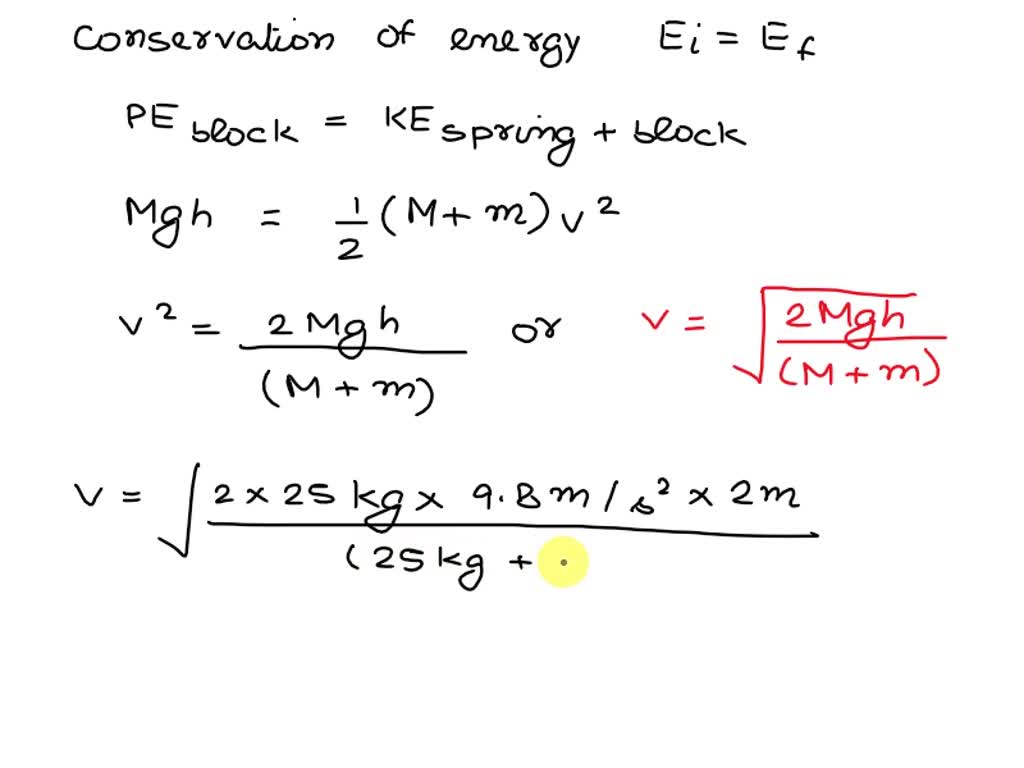 Conservation of energy Ei = Ef
PE block = KE spring + block
Mgh = 1/2 (M + m) v²
v² = 2 Mgh / (M + m) or v = √(2 Mgh / (M + m))
v = √(2 × 25 kg × 9.8 m/s² × 2m / (25 kg +